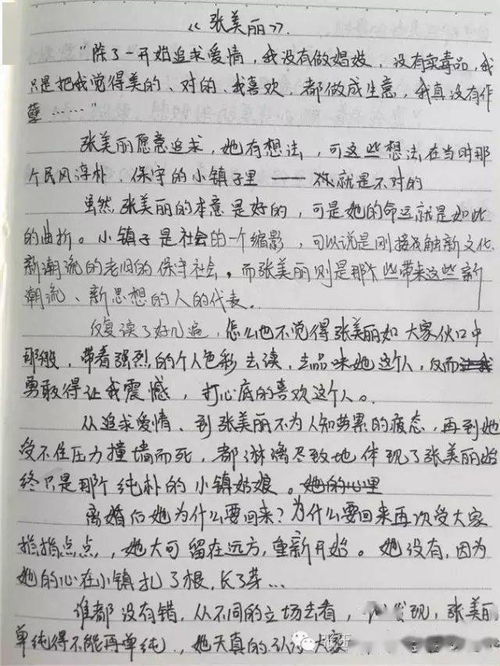 《张美丽》.
"除了一开始追求爱情，我没有做娼妓，没有卖毒品，我
只是把我觉得美的、对的、我喜欢，都做成生意，我真没有作
孽……"
张美丽愿意追求，她有想法，可这些想法在当时那
个民风淳朴、保守的小镇子里——就是不对的
虽然张美丽的本意是好的，可是她的命运就是如此
的曲折。小镇子是社会的一个缩影，可以说是刚接触新文化、
新潮流的老旧的保守社会。而张美丽则是那些带来这些新
潮流、新思想的人的代表。
反复读了好几遍，怎么也不觉得张美丽如大家伙口中
那般，带着强烈的个人色彩去读，去品味她这个人，反而
勇敢得让我震憾，打心底的喜欢这个人。
从追求爱情、到张美丽不为人知劳累的疲态，再到她
受不住压力撞墙而死，都淋漓尽致地体现了张美丽始
终只是那个纯朴的小镇姑娘。她的心里
离婚后她为什么要回来？为什么要回来再次受大家
指指点点，她大可留在远方，重新开始。她没有，因为
她的心在小镇扎了根，长了芽…
谁都没有错，从不同的立场去看，发现，张美丽
单纯得不能再单纯，她天真的认为大家